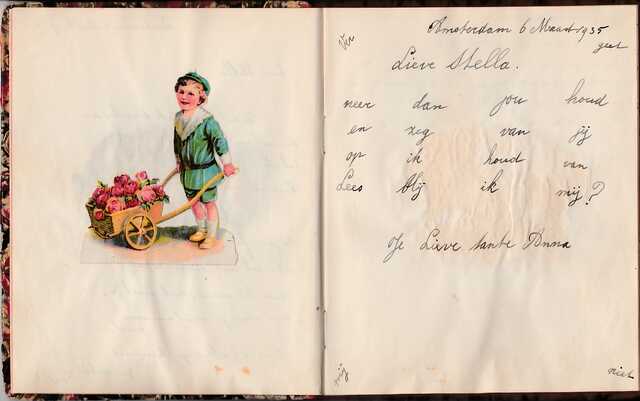 Ver
Amsterdam 6 Maart 1935
geet
Lieve Stella.
neer dan jou houd
en zeg van jij
op ik houd van
Lees blij ik mij?
Je Lieve tante Anna
mij
niet